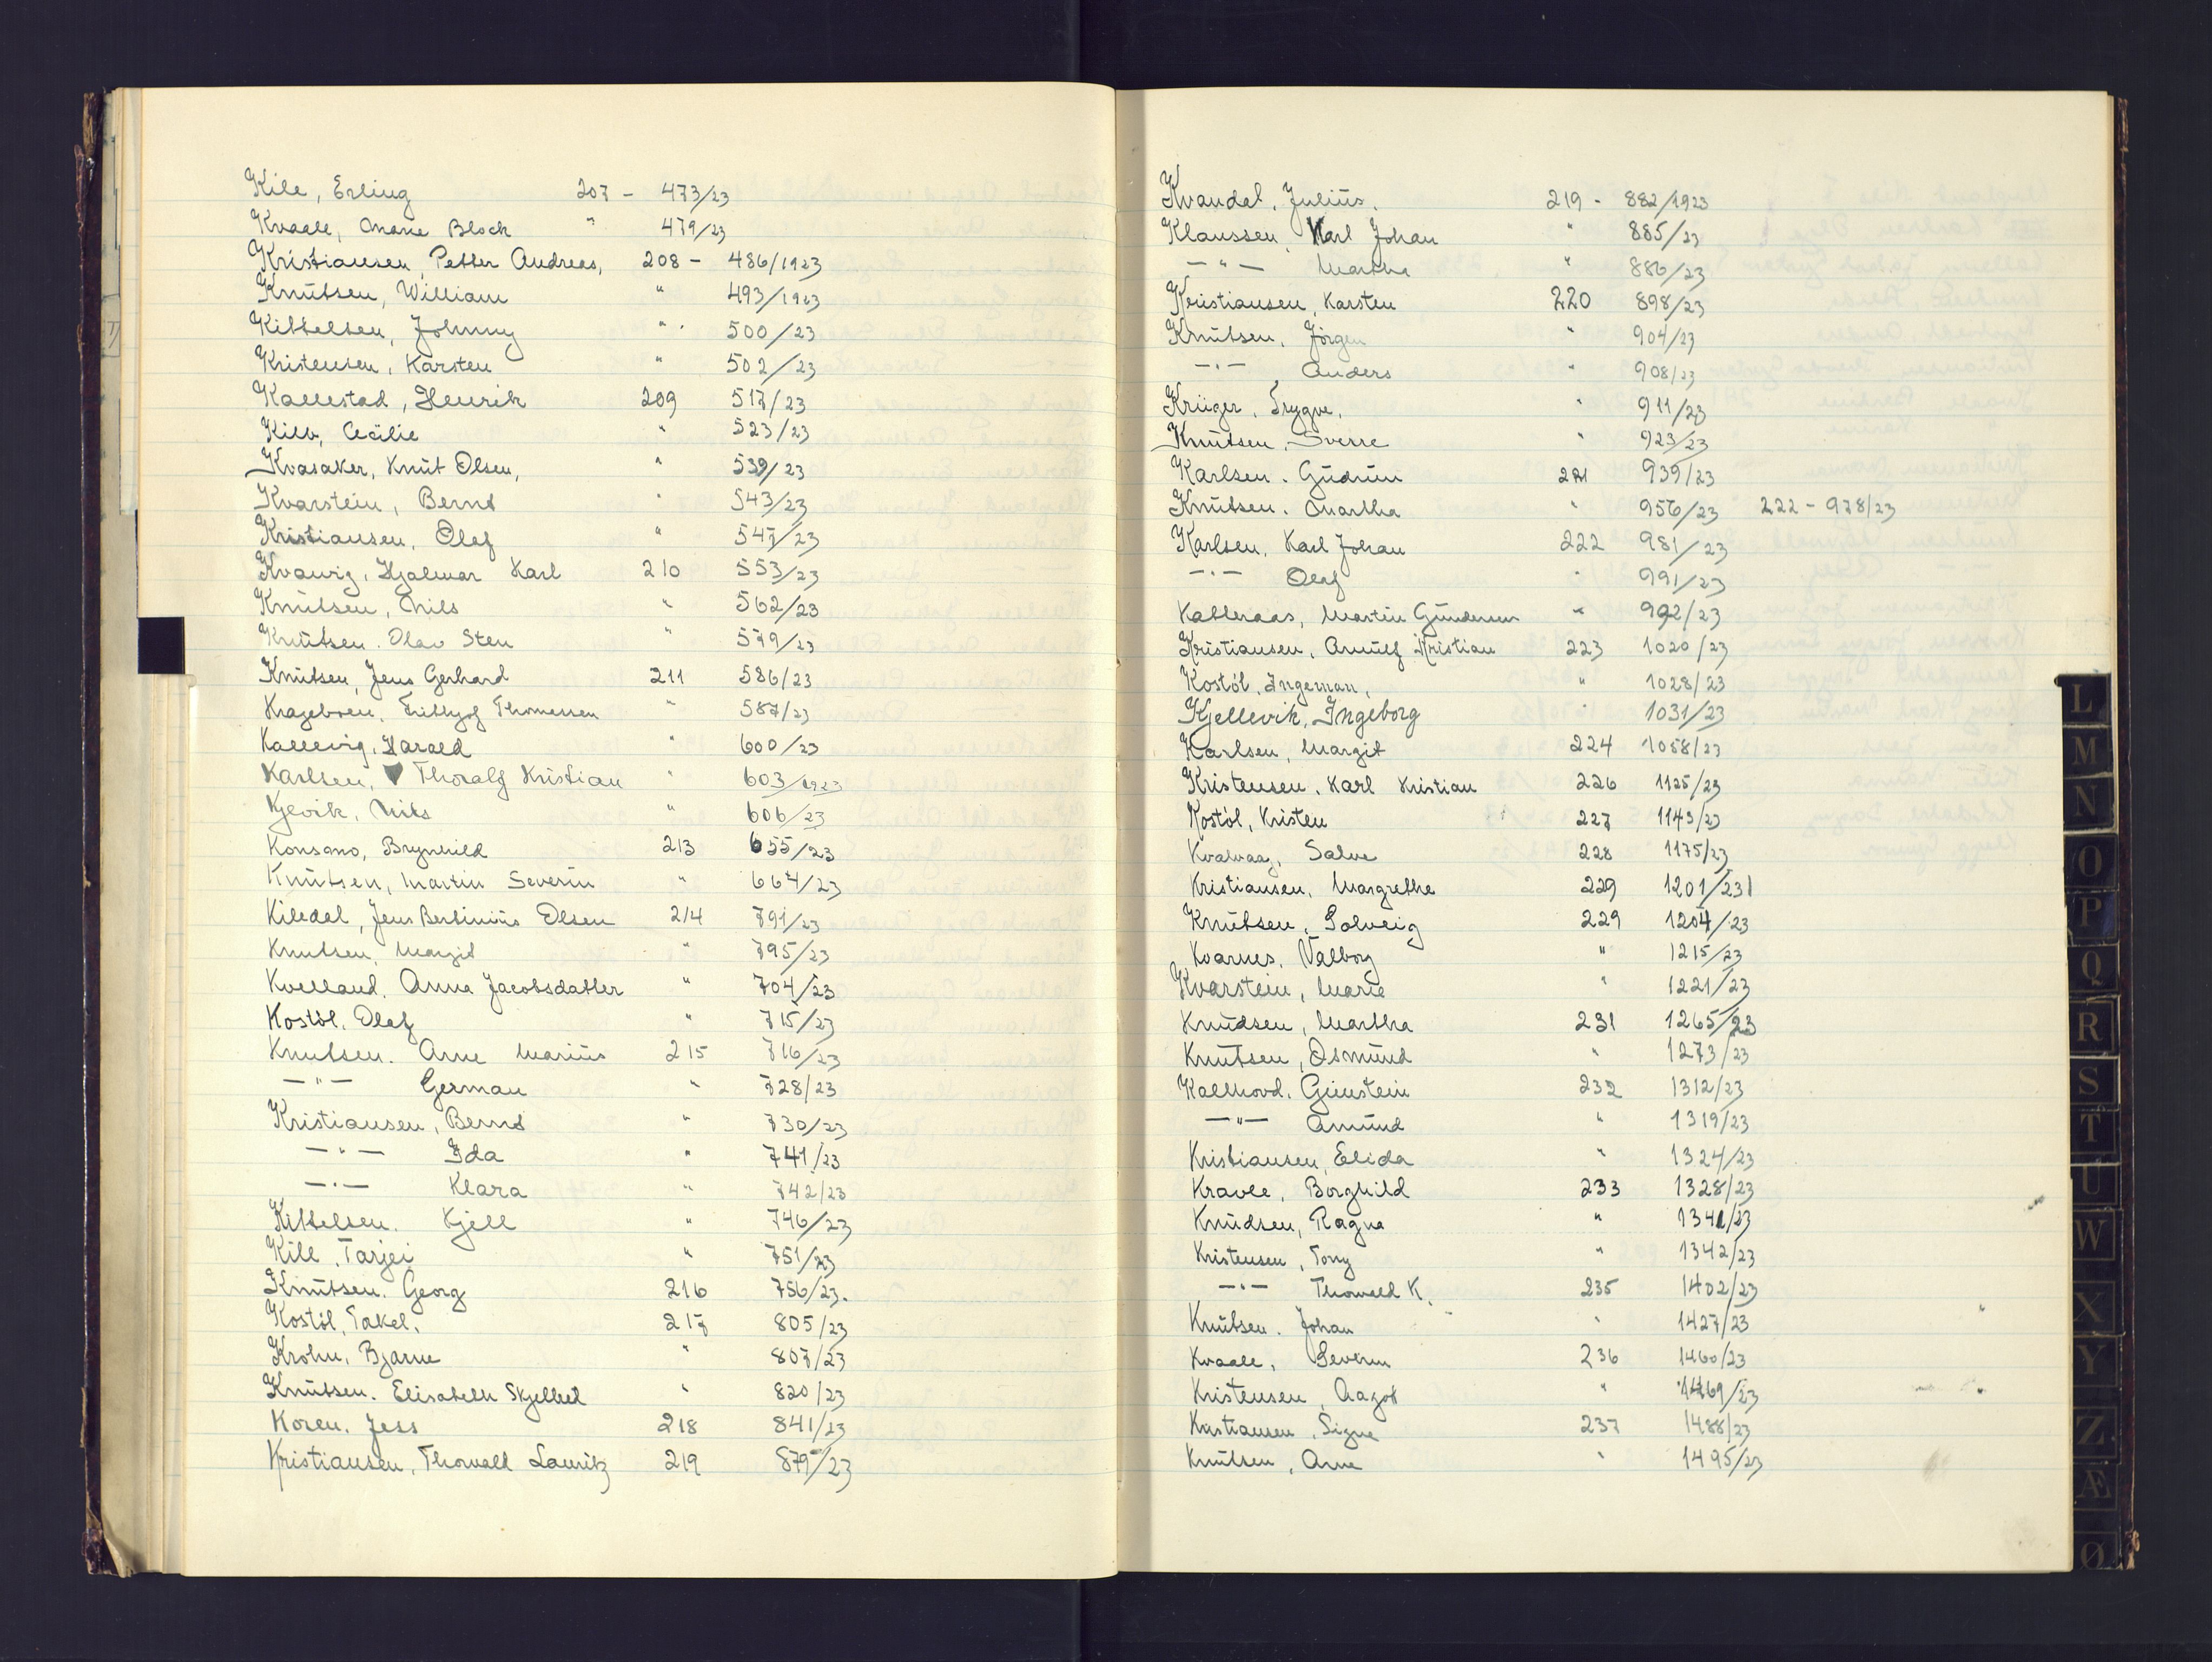 Kile, Erling 207 - 473/23
Kvaale, Marie Bloch " 479/23
Kristiansen, Petter Andreas, 208 - 486/1923
Knutsen, William " 493/1923
Kittelsen, Johnny " 500/23
Kristensen, Karsten " 502/23
Kallestad, Henrik 209 517/23
Kile, Cecilie " 523/23
Kvasaker, Knut Olsen, " 539/23
Kvarstein, Bernt " 543/23
Kristiansen, Olaf " 547/23
Kvavig, Hjalmar Karl 210 553/23
Knutsen, Nils " 562/23
Knutsen. Olav Sten " 579/23
Knutsen, Jens Gerhard 211 586/23
Krageboen, Fritjof Thomessen " 587/23
Kallevig, Harald " 600/23
Karlsen, Thoralf Kristian " 603/1923
Kjevik, Nils " 606/23
Konsmo, Brynhild 213 655/23
Knutsen, Martin Severin " 664/23
Kiledal, Jens Bertinius Olsen 214 791/23
Knutsen, Margit " 795/23
Kvelland, Anna Jacobsdatter " 704/23
Kostöl, Olaf " 715/23
Knutsen. Arne Marius 215 716/23
— " — German " 728/23
Kristiansen, Bernt " 730/23
— " — Ida " 741/23
— " — Klara " 742/23
Kittelsen. Kjell " 746/23
Kile, Tarjei " 751/23
Knutsen. Georg 216 756/23.
Kostöl, Takel. 217 805/23
Krohn, Bjarne " 807/23
Knutsen. Elisabeth Skjelbred " 820/23
Koren. Jess 218 841/23
Kristiansen, Thorvald Lauritz 219 879/23
Kvandal, Julius. 219 - 882/1923
Klaussen, Karl Johan " 885/23
— " — Martha " 886/23
Kristiansen, Karsten 220 898/23
Knutsen, Jörgen " 904/23
— " — Anders " 908/23
Krüger, Trygve, " 911/23
Knutsen, Sverre " 923/23
Karlsen. Gudrun 221 939/23
Knutsen. Martha " 956/23 222 - 978/23
Karlsen, Karl Johan 222 981/23
— " — Olaf " 991/23
Katteraas, Martin Gundersen " 992/23
Kristiansen, Arnulf Kristian 223 1020/23
Kostöl, Ingeman, " 1028/23
Kjellevik, Ingeborg " 1031/23
Karlsen, Margit 224 1058/23
Kristensen, Karl Kristian 226 1125/23
Kostöl, Kristen 227 1143/23
Kvalvaag, Salve 228 1175/23
Kristiansen, Margrethe 229 1201/23
Knutsen, Solveig 229 1204/23
Kvarnes, Valborg " 1215/23
Kvarstein, Marie " 1221/23
Knudsen, Martha 231 1265/23
Knutsen, Osmund " 1273/23
Kallhovd, Gunstein 232 1312/23
— " — Amund " 1319/23
Kristiansen, Elida " 1324/23
Kravle, Borghild 233 1328/23
Knudsen, Ragna " 1341/23
Kristensen, Tony " 1342/23
— " — Thorvald K. 235 1402/23
Knutsen. Johan " 1427/23
Kvaale, Severin 236 1460/23
Kristensen, Aagot " 1469/23
Kristiansen, Signe 237 1488/23
Knutsen, Arne " 1495/23
L
M
N
O
P
Q
R
S
T
U
W
X
Y
Z
Æ
Ø